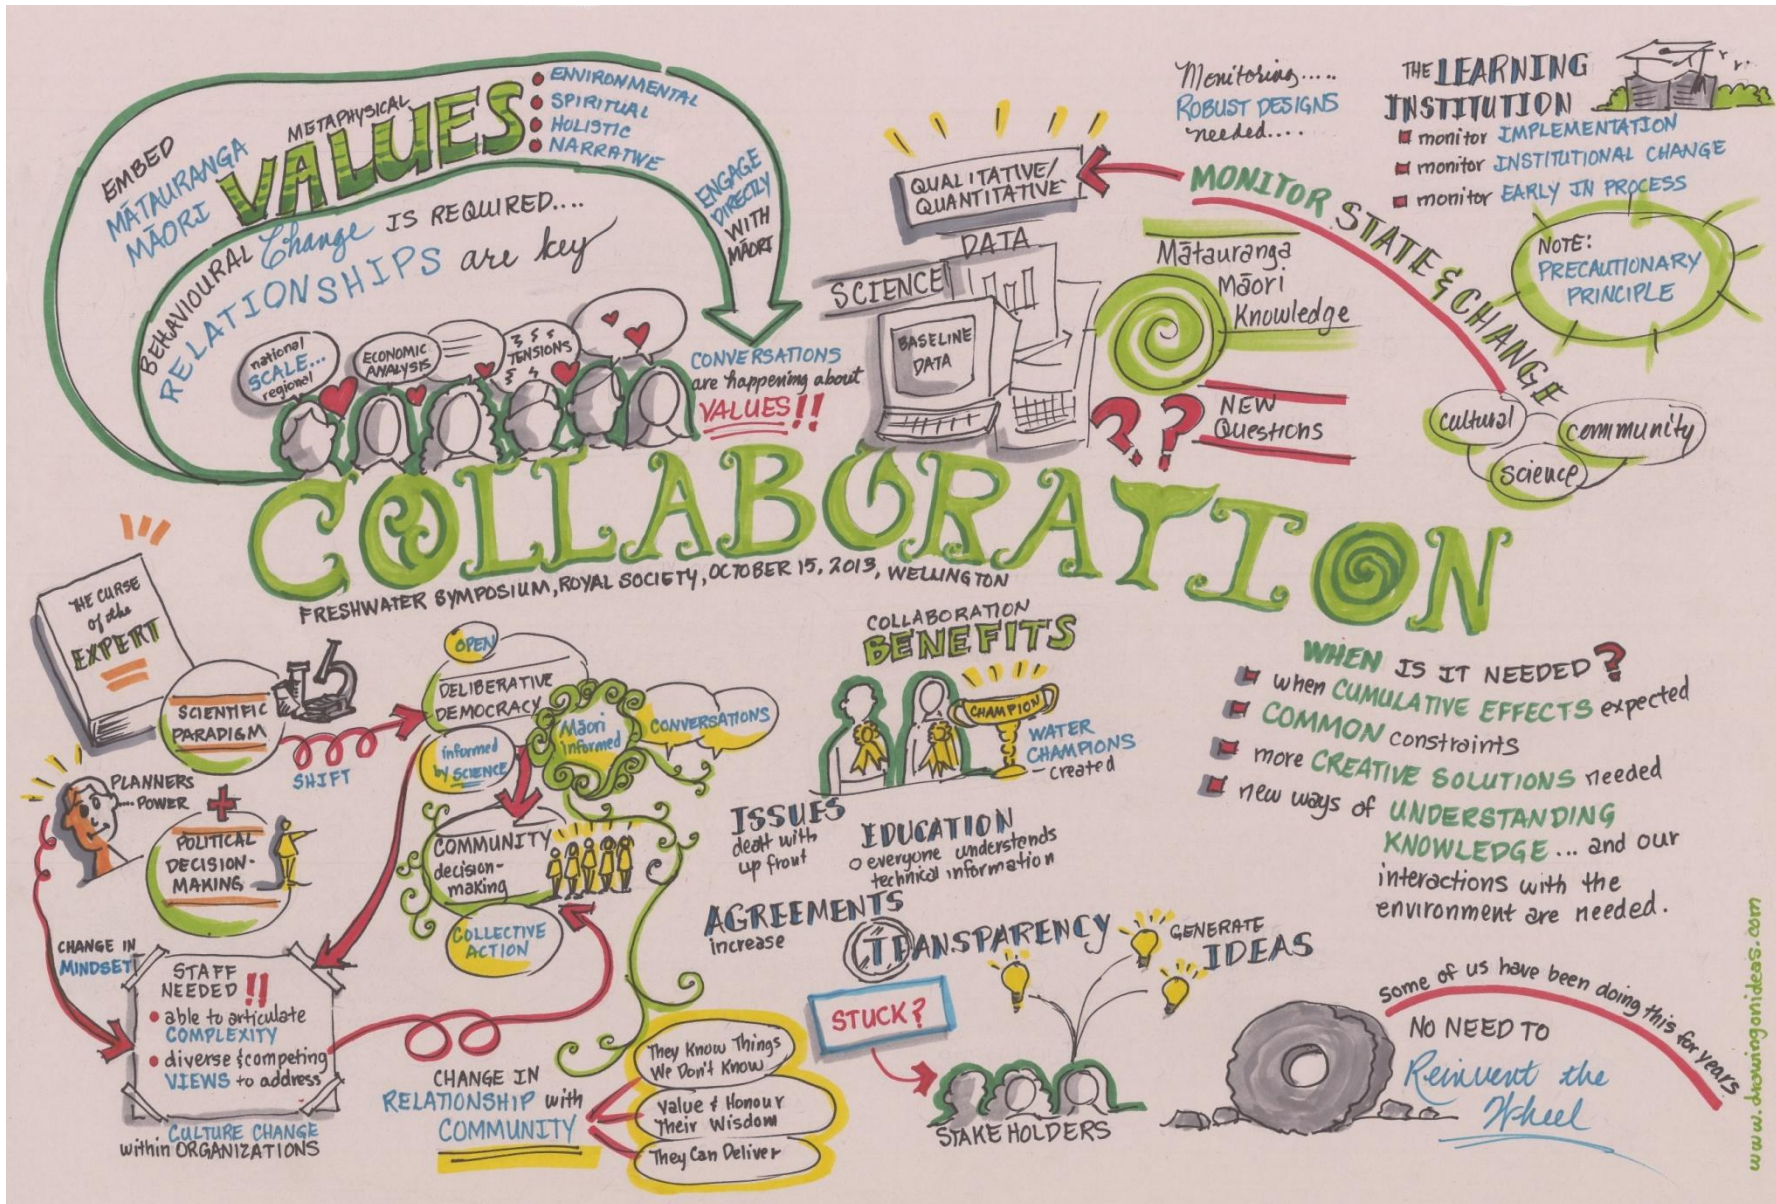 EMBED
MĀTAURANGA
MĀORI
METAPHYSICAL
VALUES
ENVIRONMENTAL
SPIRITUAL
HOLISTIC
NARRATIVE
ENGAGE
DIRECTLY
WITH
MĀORI
BEHAVIOURAL Change IS REQUIRED....
RELATIONSHIPS are key
national
SCALE...
regional
ECONOMIC
ANALYSIS
TENSIONS
CONVERSATIONS
are happening about
VALUES!!
Monitoring.....
ROBUST DESIGNS
needed....
THE LEARNING
INSTITUTION
monitor IMPLEMENTATION
monitor INSTITUTIONAL CHANGE
monitor EARLY IN PROCESS
NOTE:
PRECAUTIONARY
PRINCIPLE
MONITOR STATE & CHANGE
QUALITATIVE/
QUANTITATIVE
DATA
SCIENCE
BASELINE
DATA
Mātauranga
Māori
Knowledge
??
NEW
Questions
cultural
community
science
COLLABORATION
FRESHWATER SYMPOSIUM, ROYAL SOCIETY, OCTOBER 15, 2013, WELLINGTON
THE CURSE
of the
EXPERT
SCIENTIFIC
PARADIGM
SHIFT
PLANNERS
....POWER
+
POLITICAL
DECISION-
MAKING
CHANGE IN
MINDSET
STAFF
NEEDED!!
able to articulate
COMPLEXITY
diverse & competing
VIEWS to address
CULTURE CHANGE
within ORGANIZATIONS
OPEN
DELIBERATIVE
DEMOCRACY
informed
by SCIENCE
Māori
informed
CONVERSATIONS
COMMUNITY
decision-
making
COLLECTIVE
ACTION
CHANGE IN
RELATIONSHIP with
COMMUNITY
They Know Things
We Don't Know
Value & Honour
Their Wisdom
They Can Deliver
COLLABORATION
BENEFITS
CHAMPION
WATER
CHAMPIONS
—created
ISSUES
dealt with
up front
EDUCATION
everyone understands
technical information
AGREEMENTS
increase
TRANSPARENCY
GENERATE
IDEAS
STUCK?
STAKEHOLDERS
WHEN IS IT NEEDED?
when CUMULATIVE EFFECTS expected
COMMON constraints
more CREATIVE SOLUTIONS needed
new ways of UNDERSTANDING
KNOWLEDGE... and our
interactions with the
environment are needed.
some of us have been doing this for years
NO NEED TO
Reinvent the
Wheel
www.drawingonideas.com